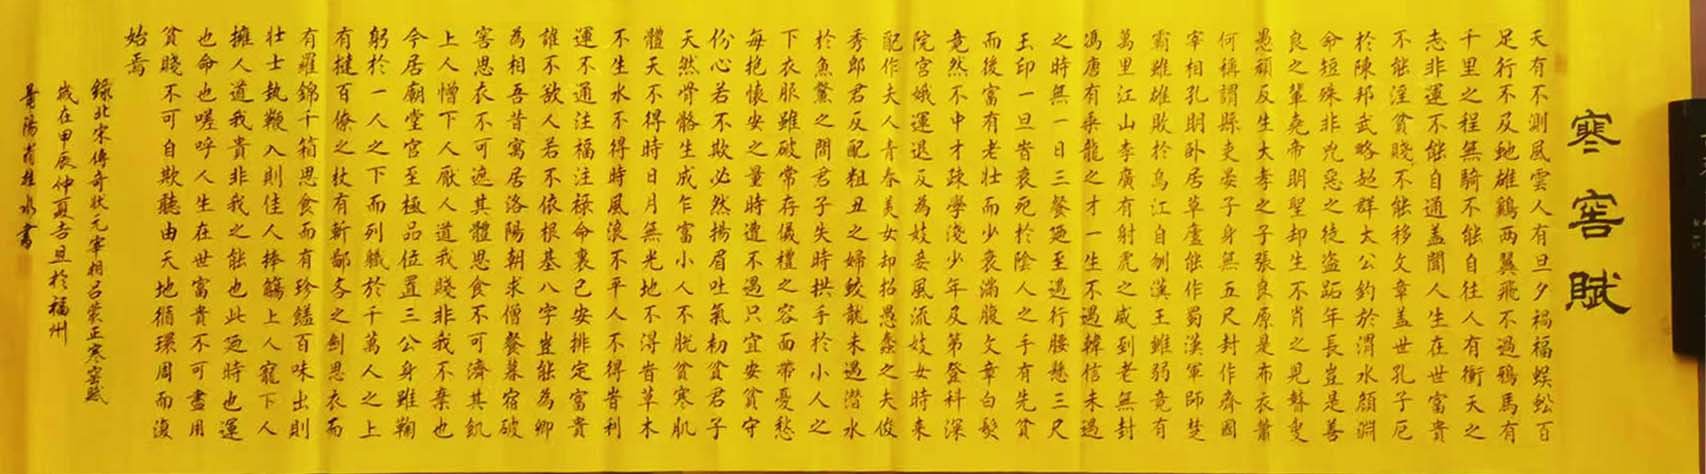 寒窖賦
天有不測風雲人有旦夕禍福蜈蚣百
足行不及虵雄鷄兩翼飛不過鴉馬有
千里之程無騎不能自往人有衝天之
志非運不能自通盖聞人生在世富貴
不能淫貧賤不能移文章盖世孔子厄
於陳邦武略超群太公釣於渭水顔淵
命短殊非兇惡之徒盗跖年長豈是善
良之輩堯帝明聖却生不肖之児瞽叟
愚頑反生大孝之子張良原是布衣蕭
何稱謂縣吏晏子身無五尺封作齊國
宰相孔明卧居草廬能作蜀漢軍師楚
霸雖雄敗於烏江自刎漢王雖弱竟有
萬里江山李廣有射虎之威到老無封
馮唐有乘龍之才一生不遇韓信未遇
之時無一日三餐廵至遇行腰懸三尺
玉印一旦旹衰死於陰人之手有先貧
而後富有老壯而少衰滿腹文章白髮
竟然不中才疎學淺少年及第登科深
院宮娥運退反為妓妾風流妓女時来
配作夫人青春美女却招愚蠢之夫俊
秀郎君反配粗丑之婦蛟龍未遇潜水
於魚鱉之間君子失時拱手於小人之
下衣服雖破常存儀禮之容面帶憂愁
每抱懷安之量時遭不遇只宜安貧守
份心若不欺必然揚眉吐氣初貧君子
天然骨骼生成乍富小人不脱貧寒肌
體天不得時日月無光地不得旹草木
不生水不得時風浪不平人不得旹利
運不通注福注禄命裏已安排定富貴
誰不欲人若不依根基八字豈能為卿
為相吾昔寓居洛陽朝求僧餐暮宿破
窖思衣不可遮其體思食不可濟其飢
上人憎下人厭人道我賤非我不棄也
今居廟堂官至極品位置三公身雖鞠
躬於一人之下而列職於千萬人之上
有撻百僚之杖有斬鄙吝之劍思衣而
有羅錦千箱思食而有珍饈百味出則
壮士執鞭入則佳人捧觴上人寵下人
擁人道我貴非我之能也此廼時也運
也命也嗟呼人生在世富貴不可盡用
貧賤不可自欺聽由天地循環周而復
始焉
錄北宋傳奇狀元宰相吕蒙正寒窑賦
歲在甲辰仲夏吉旦於福州